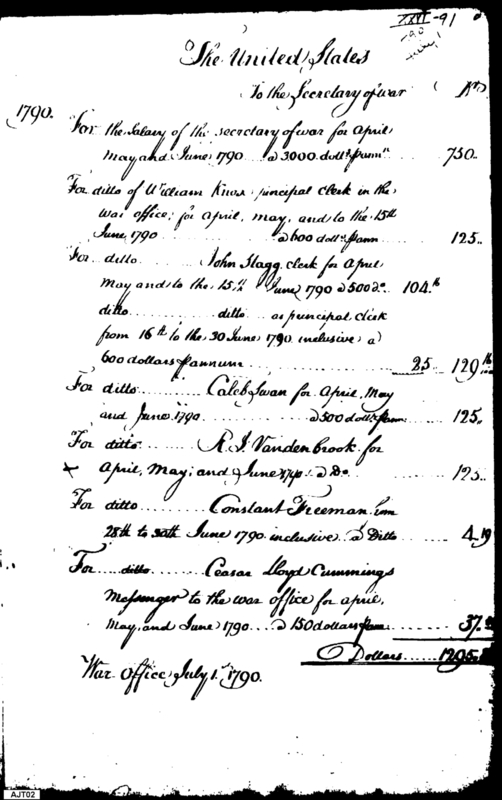 XXVI-91
-90
July 1
The United States
To the Secretary of war Dr.
1790.
For the Salary of the secretary of war for April,
may and June 1790 a 3000 dolls. pann. 750.
For ditto of William Knox principal clerk in the
war office; for april, may, and to the 15th
June 1790 a 600 dolls. pann 125..
For ditto John Stagg clerk for April
May and to the 15.th June 1790 a 500 do. 104.16
ditto ditto as principal clerk
from 16th to the 30 June 1790 inclusive a
600 dollars pannum 25 129.16
For ditto Caleb Swan for April, May
and June 1790 a 500 dolls. pann 125..
For ditto R. J. Vandenbrook for
x April, May; and June 1790 a Do. 125..
For ditto Constant Freeman
28th to 30th June 1790 inclusive a Ditto 4.19
For ditto Ceasar Lloyd Cummings
Messenger to the war office for april,
may and June 1790 a 150 dollars pann 37.
Dollars 1295.
War Office July 1st 1790.
AJT02